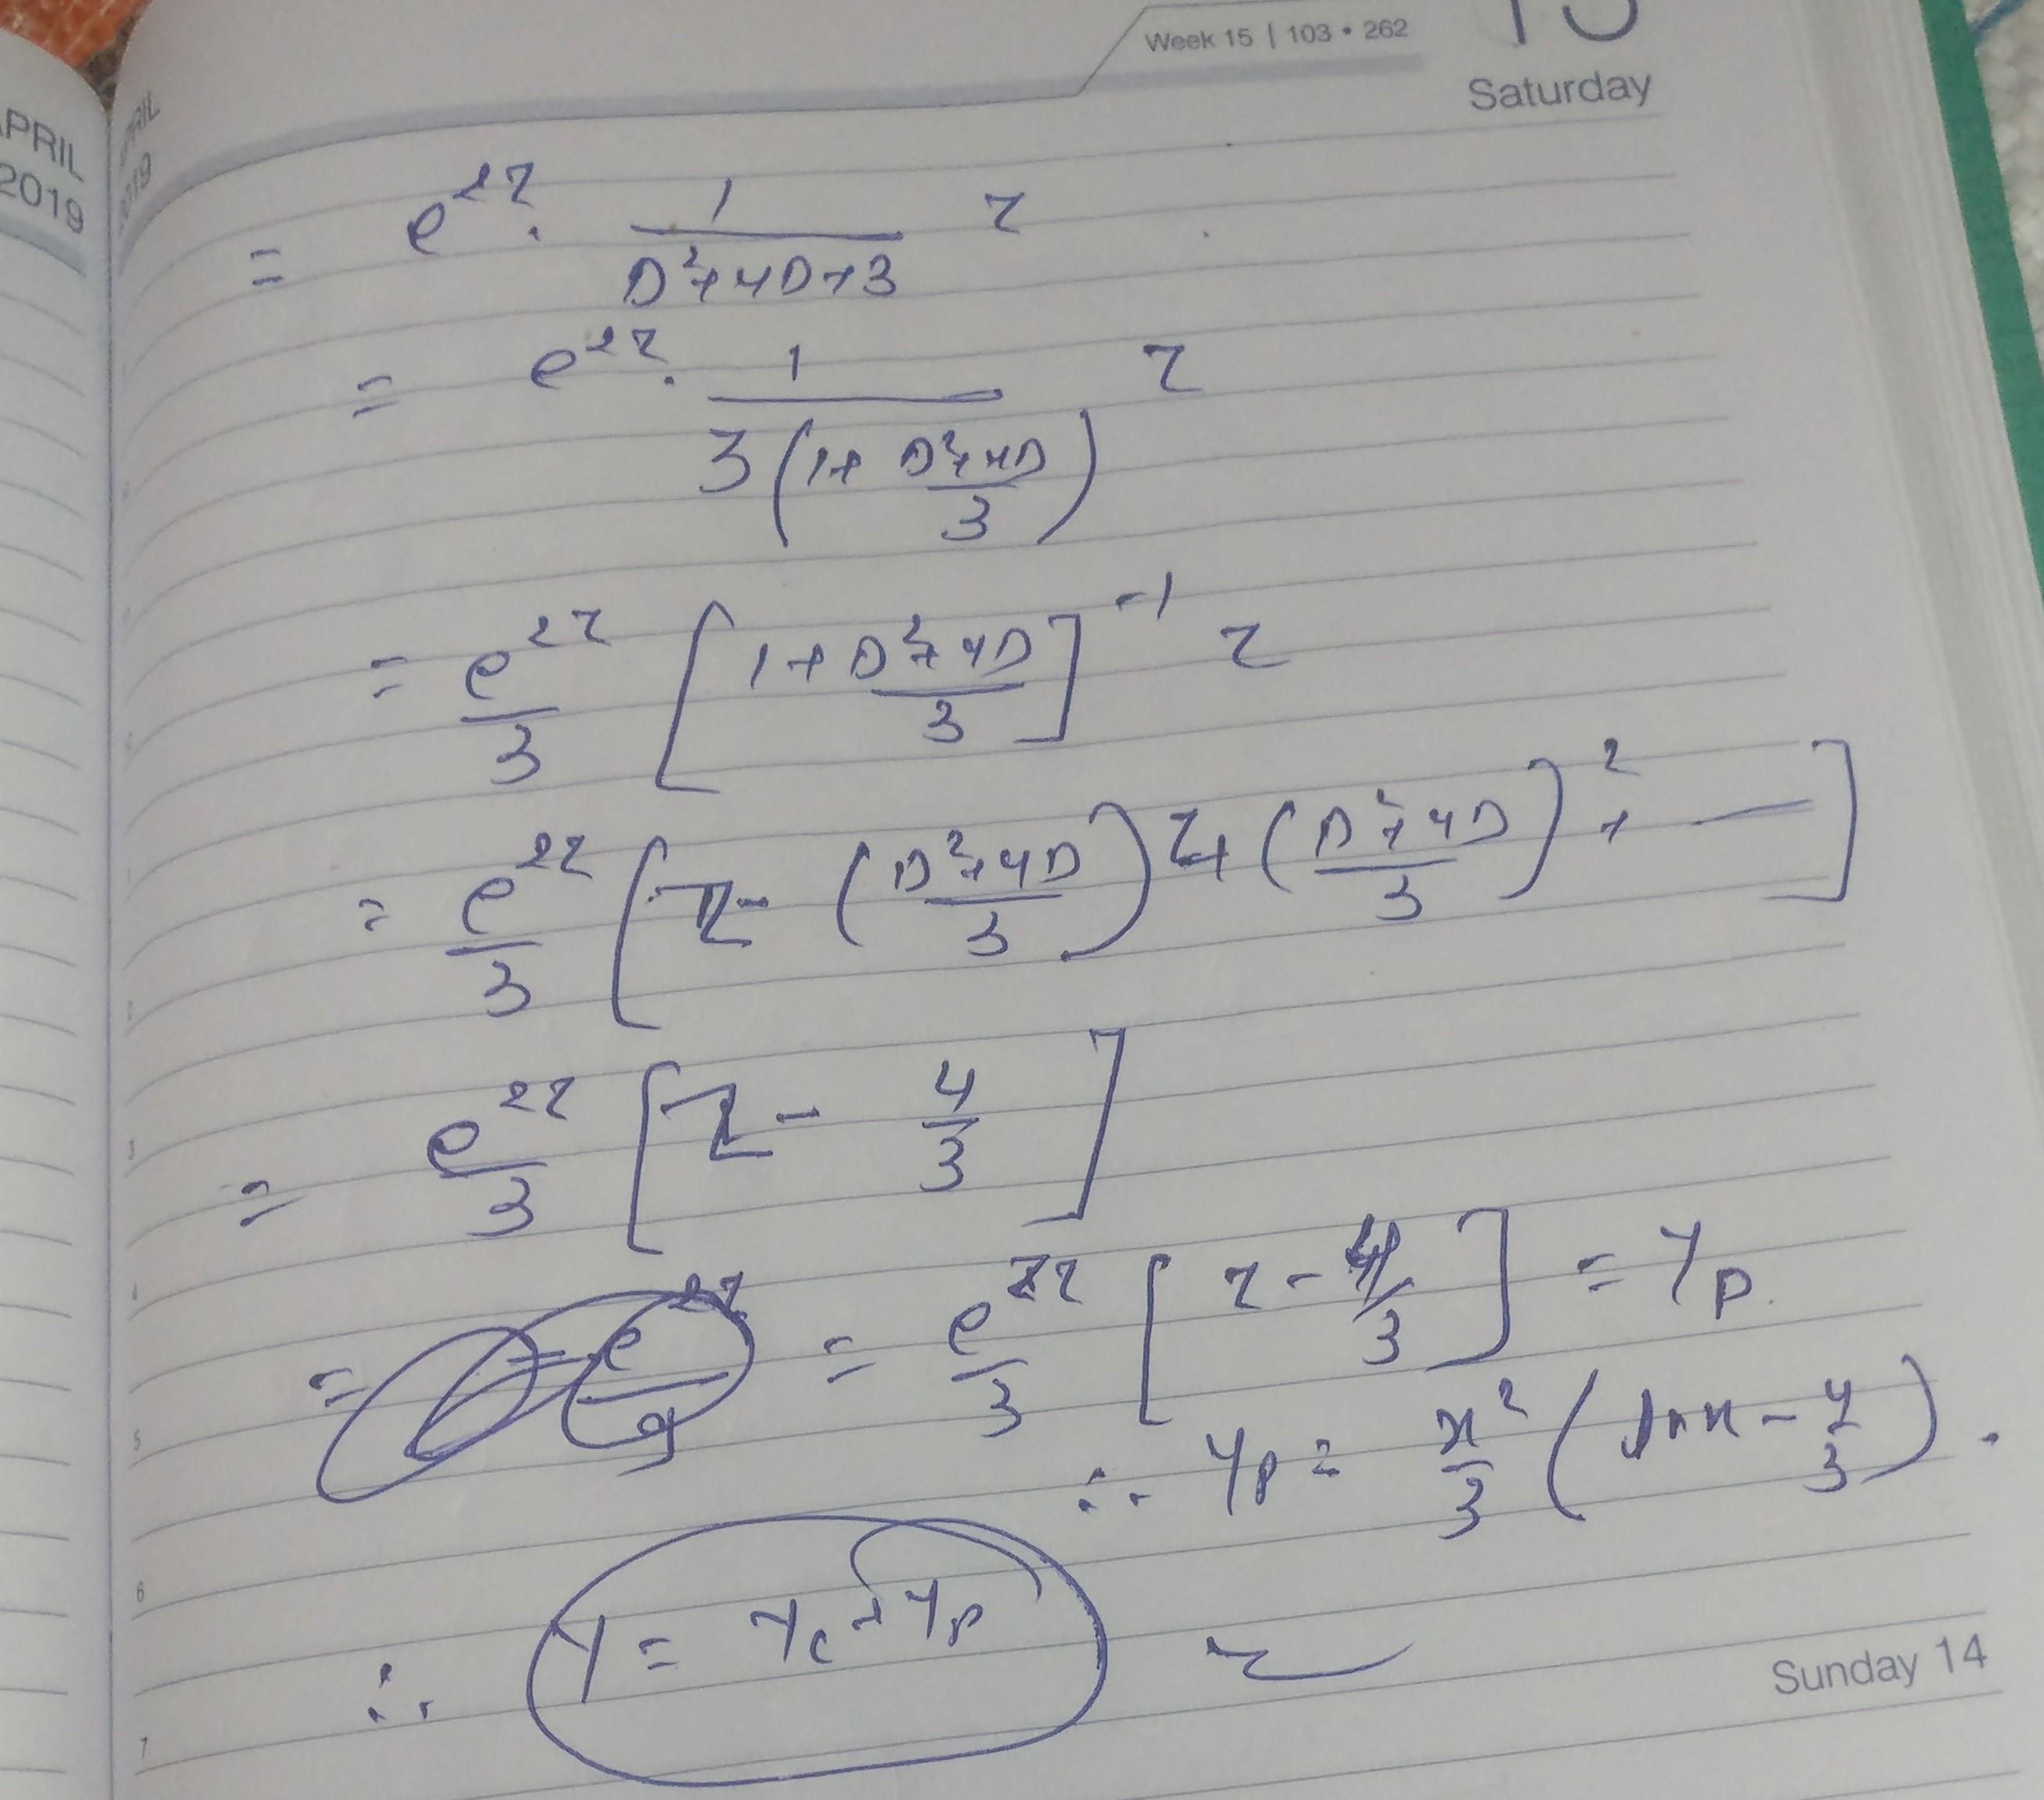 APRIL
2019
Week 15 | 103 • 262
Saturday
= e^{2z} . 1/(D²+4D+3) z
= e^{2z} . 1/(3(1+ (D²+4D)/3)) z
= e^{2z}/3 [1+ (D²+4D)/3]^{-1} z
= e^{2z}/3 [z - ((D²+4D)/3) z + ((D²+4D)/3)² + — ]
= e^{2z}/3 [z - 4/3]
= = e^{2z}/3 [z - 4/3] = Yp.
∴ Yp = x²/3 (ln x - 4/3).
∴ Y = Yc + Yp
Sunday 14